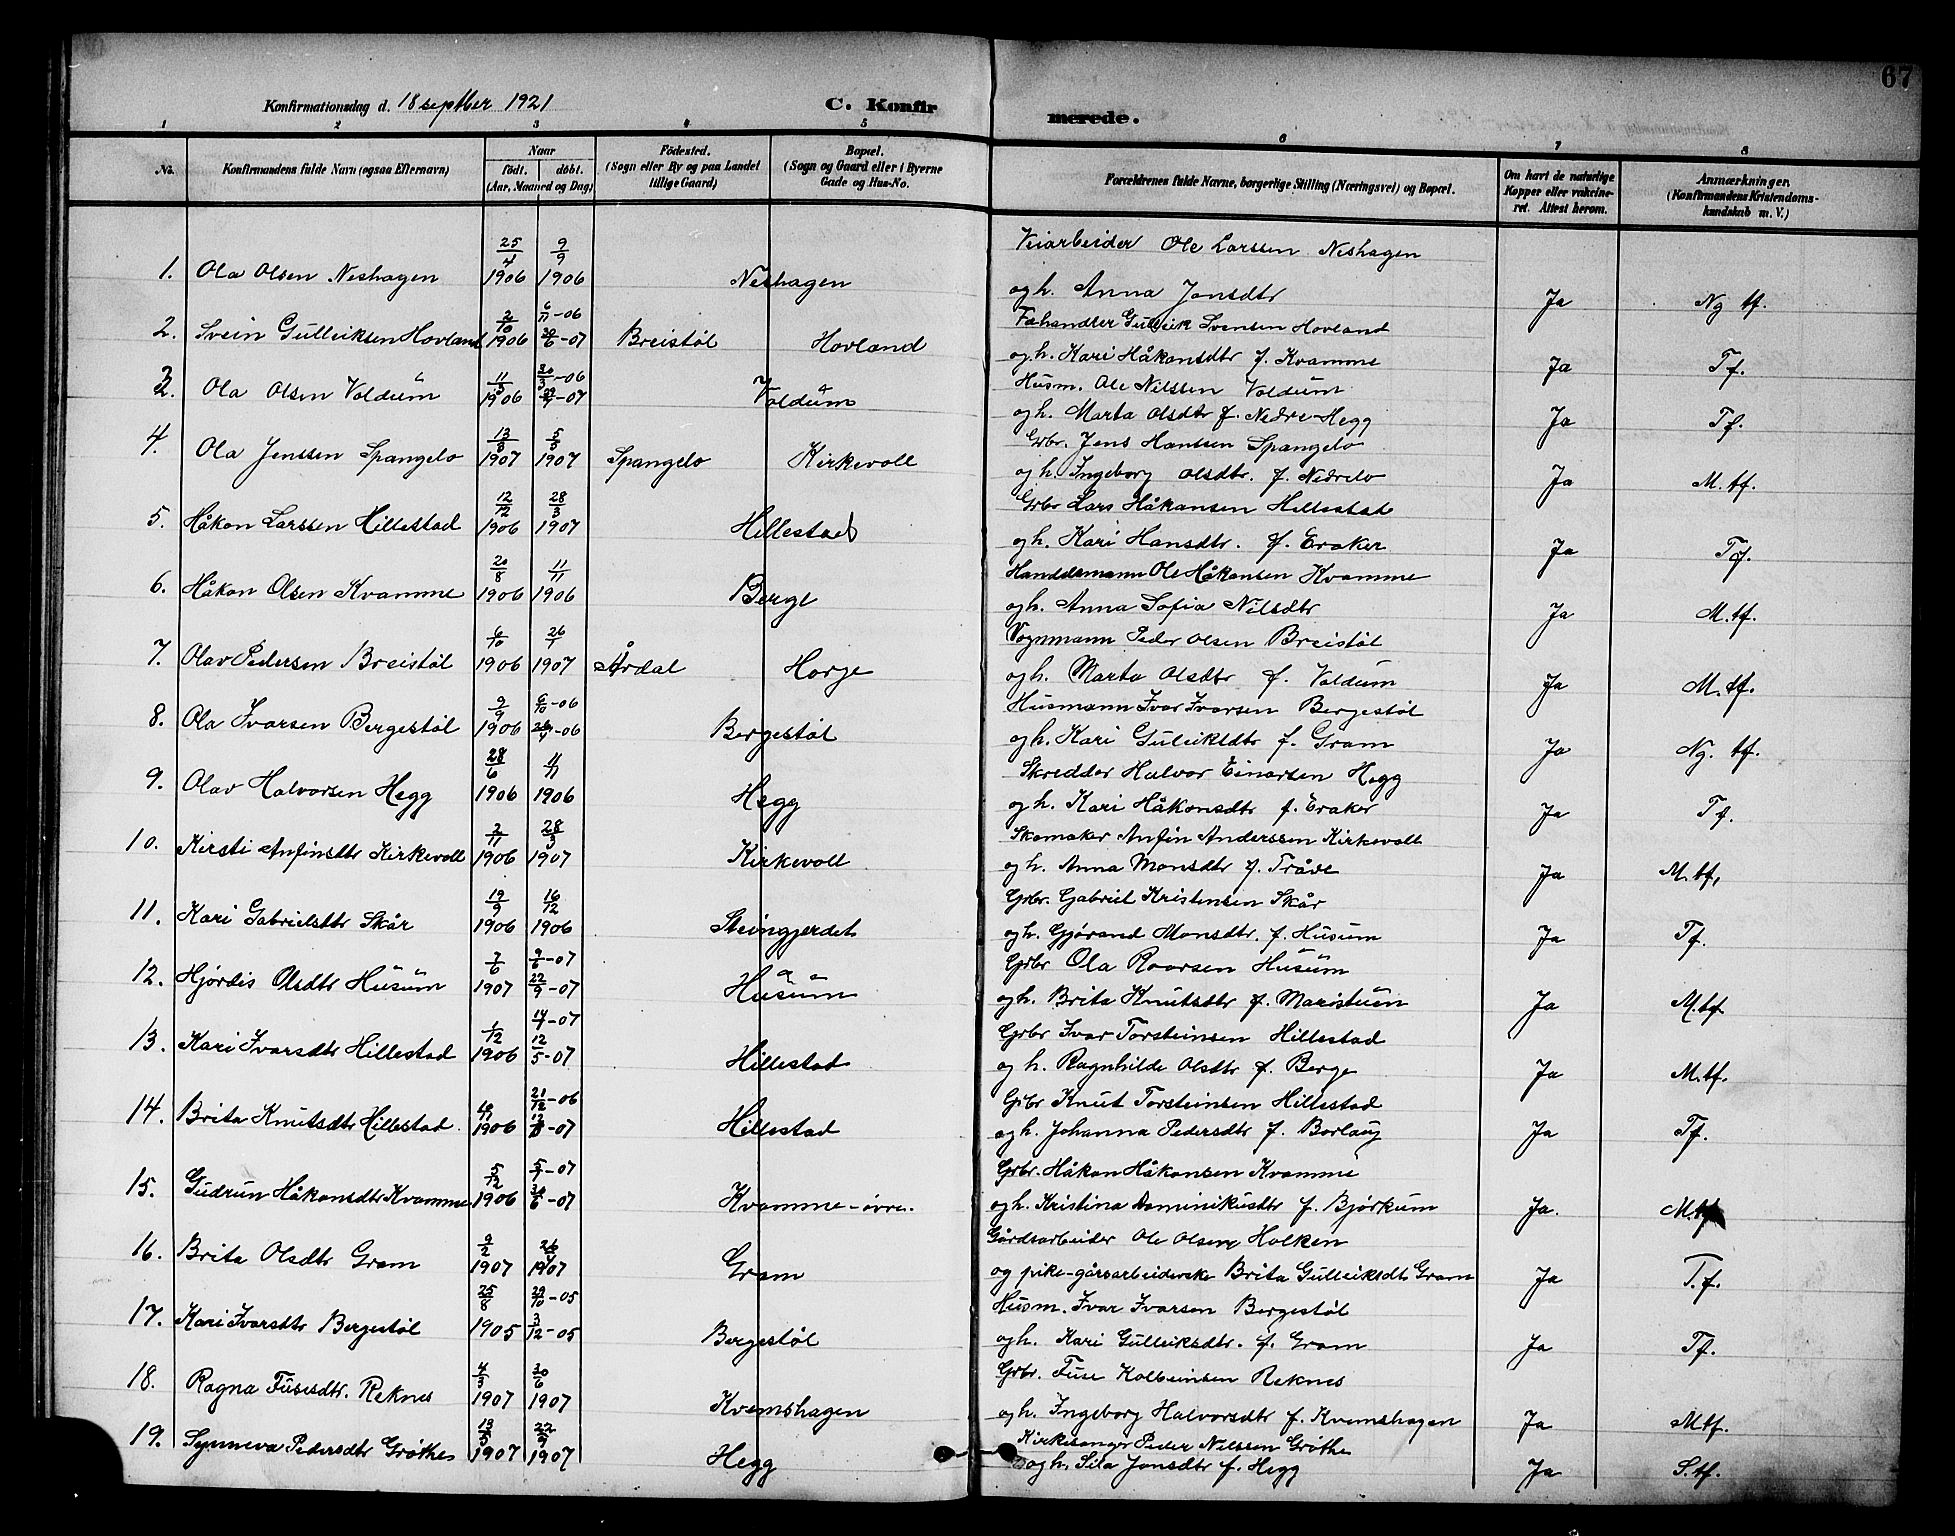 67
Konfirmationsdag d. 18 septber 1921 C. Konfirmerede.
1 2 3 4 5 6 7 8
No. Konfirmandens fulde Navn (ogsaa Efternavn) Naar født. døbt. (Aar, Maaned og Dag) Fødested. (Sogn eller By og paa Landet tillige Gaard) Bopæl. (Sogn og Gaard eller i Byerne Gade og Hus-No. Forældrenes fulde Navne, borgerlige Stilling (Næringsvei) og Bopæl. Om havt de naturlige Kopper eller vakcineret. Attest herom. Anmærkninger. (Konfirmandens Kristendomskundskab m. V.)
1. Ola Olsen Neshagen 25/4 1906 9/9 1906 Neshagen Veiarbeider Ole Larssen Neshagen
og h. Anna Jonsdtr Ja Ng tf.
2. Svein Gulleiksen Hovland 2/10 1906 6/11-06 30/6-07 Breistøl Hovland Fehandler Gulleik Svensen Hovland
og h. Kari Håkonsdtr f. Kvamme Ja Tf.
3. Ola Olsen Voldum 11/3 1906 30/3-06 -07 Voldum Husm. Ole Nilssen Voldum
og h. Marta Olsdtr f. Nedre-Hegg Ja Tf.
4. Ola Jenssen Spangelo 13/3 1907 5/5 1907 Spangelo Kirkevoll Grbr. Jens Hanssen Spangelo
og h. Ingeborg Olsdtr. f. Nedrelo Ja M. tf.
5. Håkon Larssen Hillestad 12/12 1906 28/3 1907 Hillestad Grbr Lars Håkonsen Hillestad
og h. Kari Hansdtr. f. Eraker Ja Tf.
6. Håkon Olsen Kvamme 20/8 1906 11/11 1906 Berge Handdsmann Ole Håkonsen Kvamme
og h. Anna Sofia Nilsdtr Ja M. tf.
7. Olav Pedersen Breistøl 6/10 1906 26/1 1907 Årdal Horge Vognmann Peder Olsen Breistøl
og h. Marta Olsdtr f. Voldum Ja M. tf.
8. Ola Ivarsen Bergestøl 2/9 1906 6/10-06 -06 Bergestøl Husmann Ivar Ivarsen Bergestøl
og h. Kari Guleiksdtr f. Gram Ja Ng. tf.
9. Olav Halvorsen Hegg 28/6 1906 11/11 1906 Hegg Skredder Halvor Einarsen Hegg
og h. Kari Håkonsdtr f. Eraker Ja Tf.
10. Kirsti Anfinsdtr Kirkevoll 2/11 1906 28/3 1907 Kirkevoll Skomaker Anfin Anderssen Kirkevoll
og h. Anna Monsdtr f. Tråve Ja M. tf.
11. Kari Gabrielsdtr Skår 19/9 1906 16/12 1906 Steingjerdet Grbr. Gabriel Kristensen Skår
og h. Gjørand Monsdtr. f. Husum Ja Tf.
12. Hjørdis Olsdtr Husum 7/6 1907 9/6-07 22/9-07 Husum Grbr Ola Roarsen Husum
og h. Brita Knutsdtr f. Maristuen Ja M. tf
13. Kari Ivarsdtr Hillestad 1/12 1906 14/1-07 12/5-07 Hillestad Grbr Ivar Torsteinsen Hillestad
og h. Ragnhilde Olsdtr f. Berge Ja M. tf.
14. Brita Knutsdtr Hillestad. 1906 21/12-06 -07 Hillestad Grbr Knut Torsteinsen Hillestad
og h. Johanna Pedersdtr f. Borlaug Ja Tf.
15. Gudrun Håkonsdtr Kvamme 5/12 1906 5/1-07 30/6-07 Kvamme-øvre. Grbr. Håkon Håkonsen Kvamme
og h. Kristina Dominikusdtr f. Bjørkum Ja. M. tf
16. Brita Olsdtr Gram 9/2 1907 1907 Gram Gårdsarbeider Ole Olsen Holken
og pike-gårsarbeiderske Brita Gulleiksdtr Gram Ja T. f.
17. Kari Ivarsdtr Bergestøl 25/8 1905 29/10-05 3/12-05 Bergestøl Husm. Ivar Ivarsen Bergestøl
og h. Kari Gulleiksdtr. f. Gram Ja Tf.
18. Ragna Fusesdtr. Reknes 4/3 1907 30/6 1907 Kvemshagen Grbr. Fuse Kolbeinsen Reknes
og h. Ingeborg Halvorsdtr f. Kvemshagen Ja M tf.
19. Synneva Pedersdtr Grøthe 13/5 1907 22/9 1907 Hegg Kirkesanger Peder Nilssen Grøthe
og h. Sila Jonsdtr f. Hegg Ja S. tf.